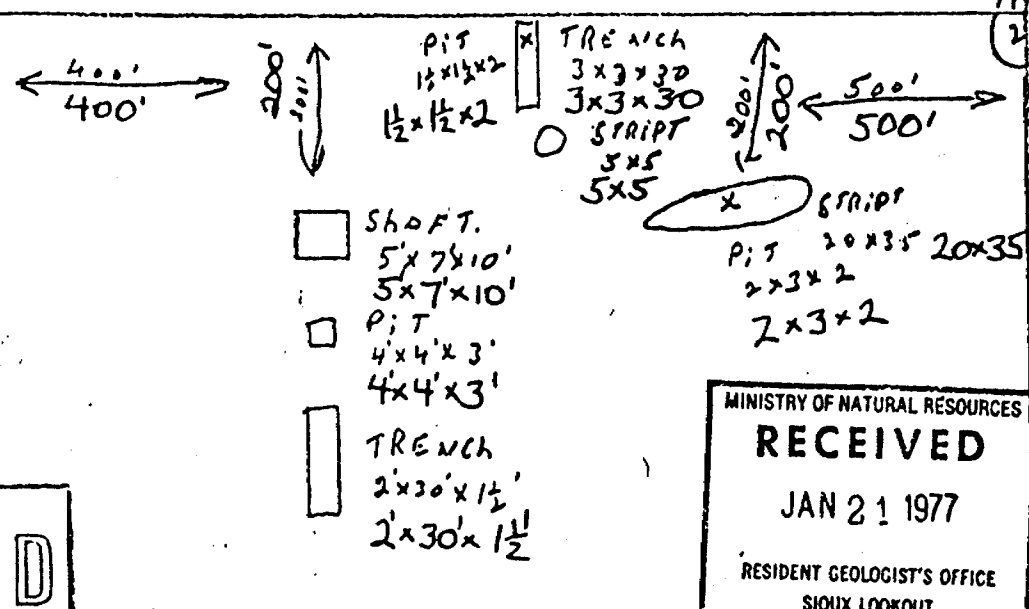 2
400'
400'
200'
200'
PiT
1½x1½x2
1½x1½x2
x
TRENCh
3x3x30
3x3x30
STRiPT
5x5
5x5
200'
200'
500'
500'
x
STRiPT
20x35
20x35
PiT
2x3x2
2x3x2
ShaFT.
5'x7'x10'
5'x7'x10'
PiT
4'x4'x3'
4'x4'x3'
TRENCh
2'x30'x1½'
2'x30'x1½'
D
MINISTRY OF NATURAL RESOURCES
RECEIVED
JAN 21 1977
RESIDENT GEOLOGIST'S OFFICE
SIOUX LOOKOUT